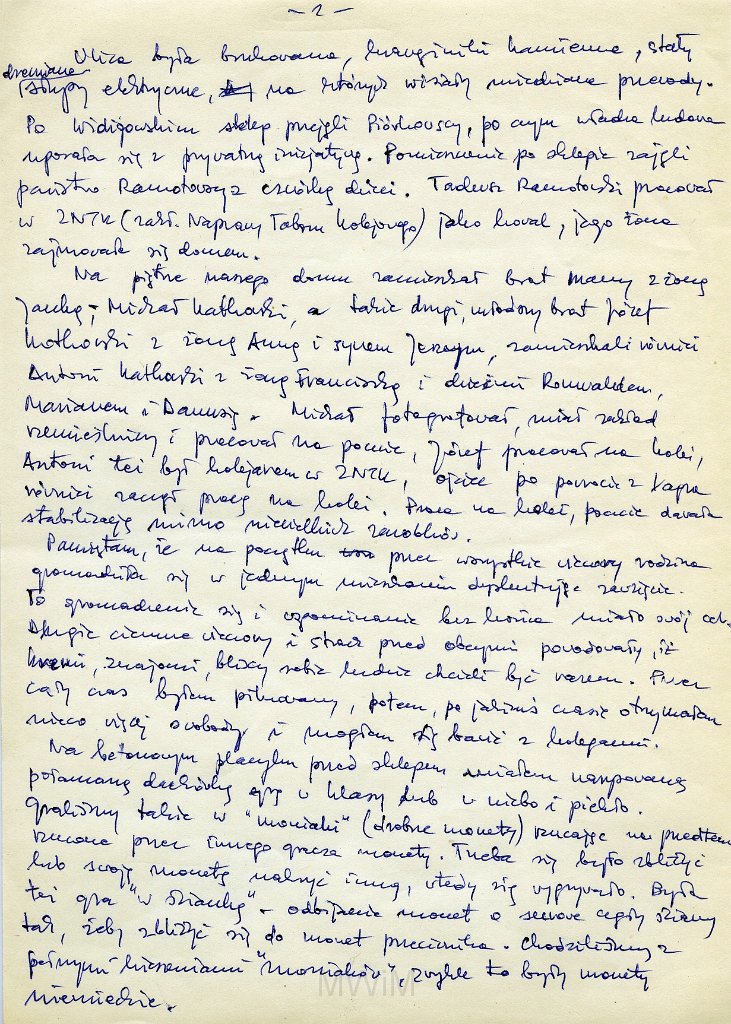 - 2 -
Ulica była brukowana, krawężniki kamienne, stały
drewniane
słupy elektryczne, na których wisiały miedziane przewody.
Po Widigowskim sklep przejęli Piórkowscy, po czym władza ludowa
uporała się z prywatną inicjatywą. Pomieszczenie po sklepie zajęli
państwo Ramotowscy z czwórką dzieci. Tadeusz Ramotowski pracował
w ZNTK (zakł. Naprawy Taboru Kolejowego) jako kowal, jego żona
zajmowała się domem.
Na piętrze naszego domu zamieszkał brat mamy z żoną
Janką, Michał Kotkowski, a także drugi, młodszy brat Józef
Kotkowski z żoną Anną i synem Jerzym, zamieszkali również
Antoni Kotkowski z żoną Franciszką i dziećmi Romualdem,
Marianem i Danusią. Michał fotografował, miał zakład
rzemieślniczy i pracował na poczcie, Józef pracował na kolei,
Antoni też był kolejarzem w ZNTK, ojciec po powrocie z
również zaczął pracę na kolei. Praca na kolei, poczcie dawała
stabilizację mimo niewielkich zarobków.
Pamiętam, że na początku przez wszystkie wieczory rodzina
gromadziła się w jednym mieszkaniu dyskutując zawzięcie.
To gromadzenie się i wspominanie bez końca miało swój cel.
Długie ciemne wieczory i strach przed obcymi powodowały, iż
krewni, znajomi, bliscy sobie ludzie chcieli być razem. Przez
cały czas byłem pilnowany, potem, po jakimś czasie otrzymałem
nieco więcej swobody i mogłem się bawić z kolegami.
Na betonowym placyku przed sklepem miałem narysowaną
połamaną dachówką grę w klasy lub w niebo i piekło.
Graliśmy także w "moniaki" (drobne monety) rzucając na przedtem
rzucone przez innego gracza monety. Trzeba się było zbliżyć
lub swoją monetą nakryć inną, wtedy się wygrywało. Była
też gra "w ściankę" - odbijanie monet o surowe cegły ściany
tak, żeby zbliżyć się do monet przeciwnika. Chodziliśmy z
pełnymi kieszeniami "moniaków", zwykle to były monety
niemieckie.
MWiM